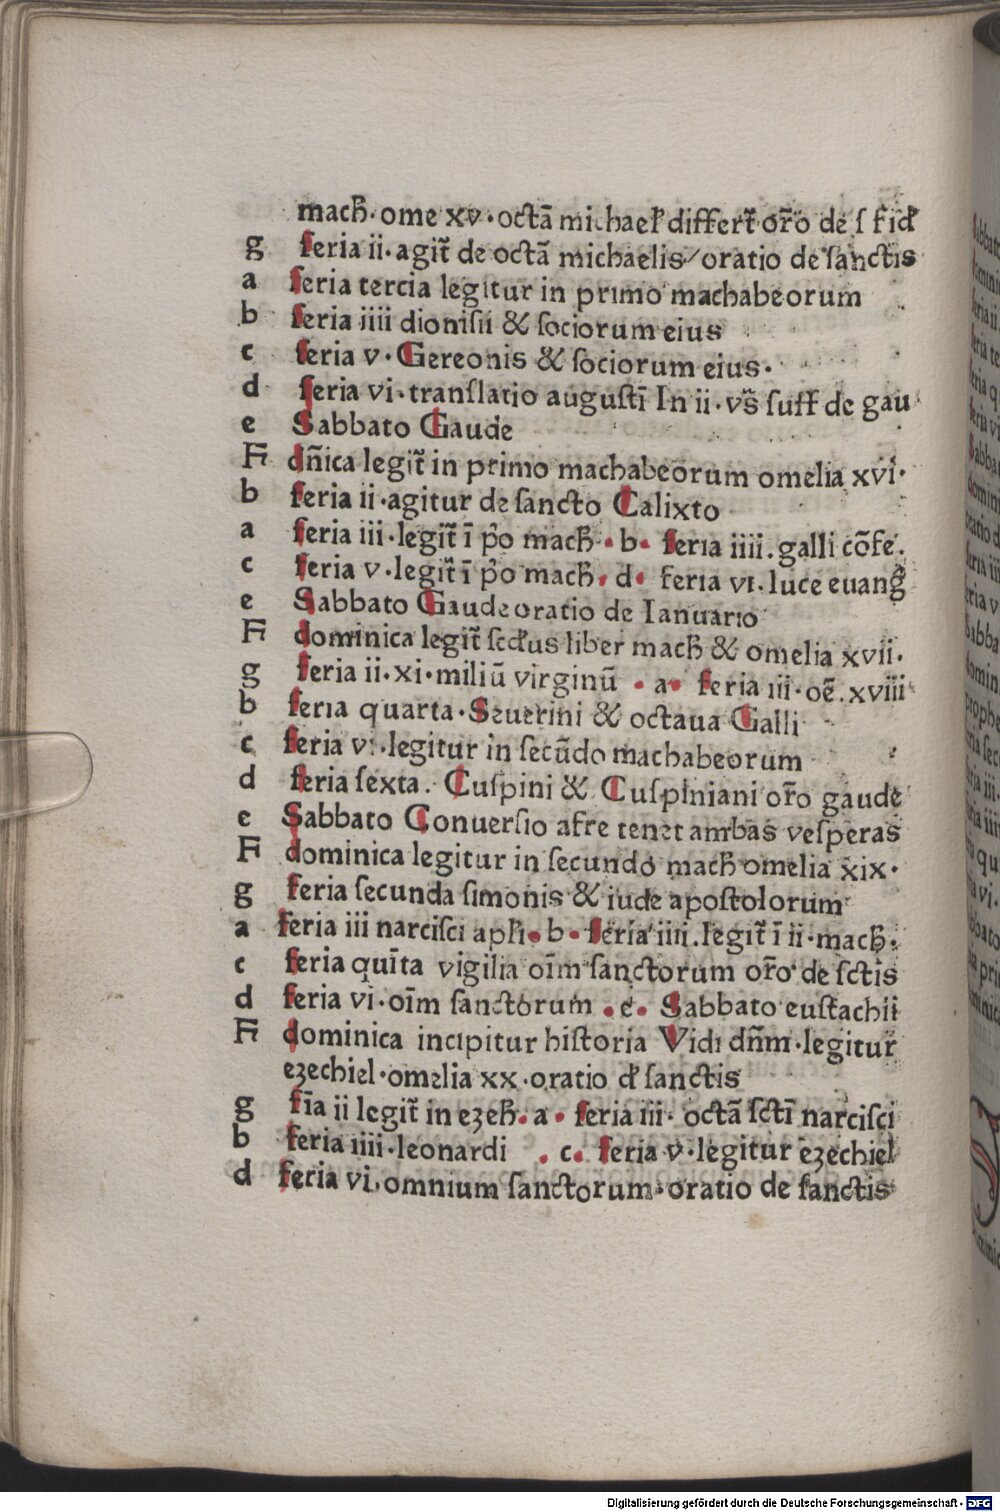 mach̄· ome xv· octā michael̄ differt̄ or̄o de s fid̄
g feria ii· agit̄ de octā michaelis/ oratio de ſanctis
a feria tercia legitur in primo machabeorum
b feria iiii dioniſii & ſociorum eius
c feria v· Gereonis & ſociorum eius·
d feria vi· tranſlatio auguſtī In ii· vs̄ ſuff̄ de gau
e Sabbato Gaude
A dn̄ica legit̄ in primo machabeorum omelia xvi·
b feria ii· agitur de ſancto Calixto
a feria iii· legit̄ ī p̄o mach̄· b· feria iiii. galli cōfe.
c feria v· legit̄ ī p̄o mach̄. d· feria vi. luce euanḡ
e Sabbato Gaude oratio de Ianuario
A dominica legit̄ ſecd̄us liber mach̄ & omelia xvii·
g feria ii· xi· miliū virginū · a· feria iii· oē. xviii
b feria quarta· Seuerini & octaua Galli
c feria v· legitur in ſecūdo machabeorum
d feria ſexta. Cuſpini & Cuſpiniani or̄o gaude
e Sabbato Conuerſio afre tenet ambas veſperas
A dominica legitur in ſecundo mach̄ omelia xix·
g feria ſecunda ſimonis & iude apoſtolorum
a feria iii narciſci aph̄· b· feria iiii. legit̄ ī ii· mach̄.
c feria quīta vigilia oīm ſanctorum or̄o de ſctīs
d feria vi· oīm ſanctorum · e· Sabbato euſtachii
A dominica incipitur hiſtoria Vidi dn̄m· legitur
ezechiel· omelia xx· oratio d̄ ſanctis
g fīa ii legit̄ in ezech̄. a· feria iii· octā ſctī narciſci
b feria iiii· leonardi . c. feria v· legitur ezechiel
d feria vi. omnium ſanctorum· oratio de ſanctis
Digitalisierung gefördert durch die Deutsche Forschungsgemeinschaft - DFG